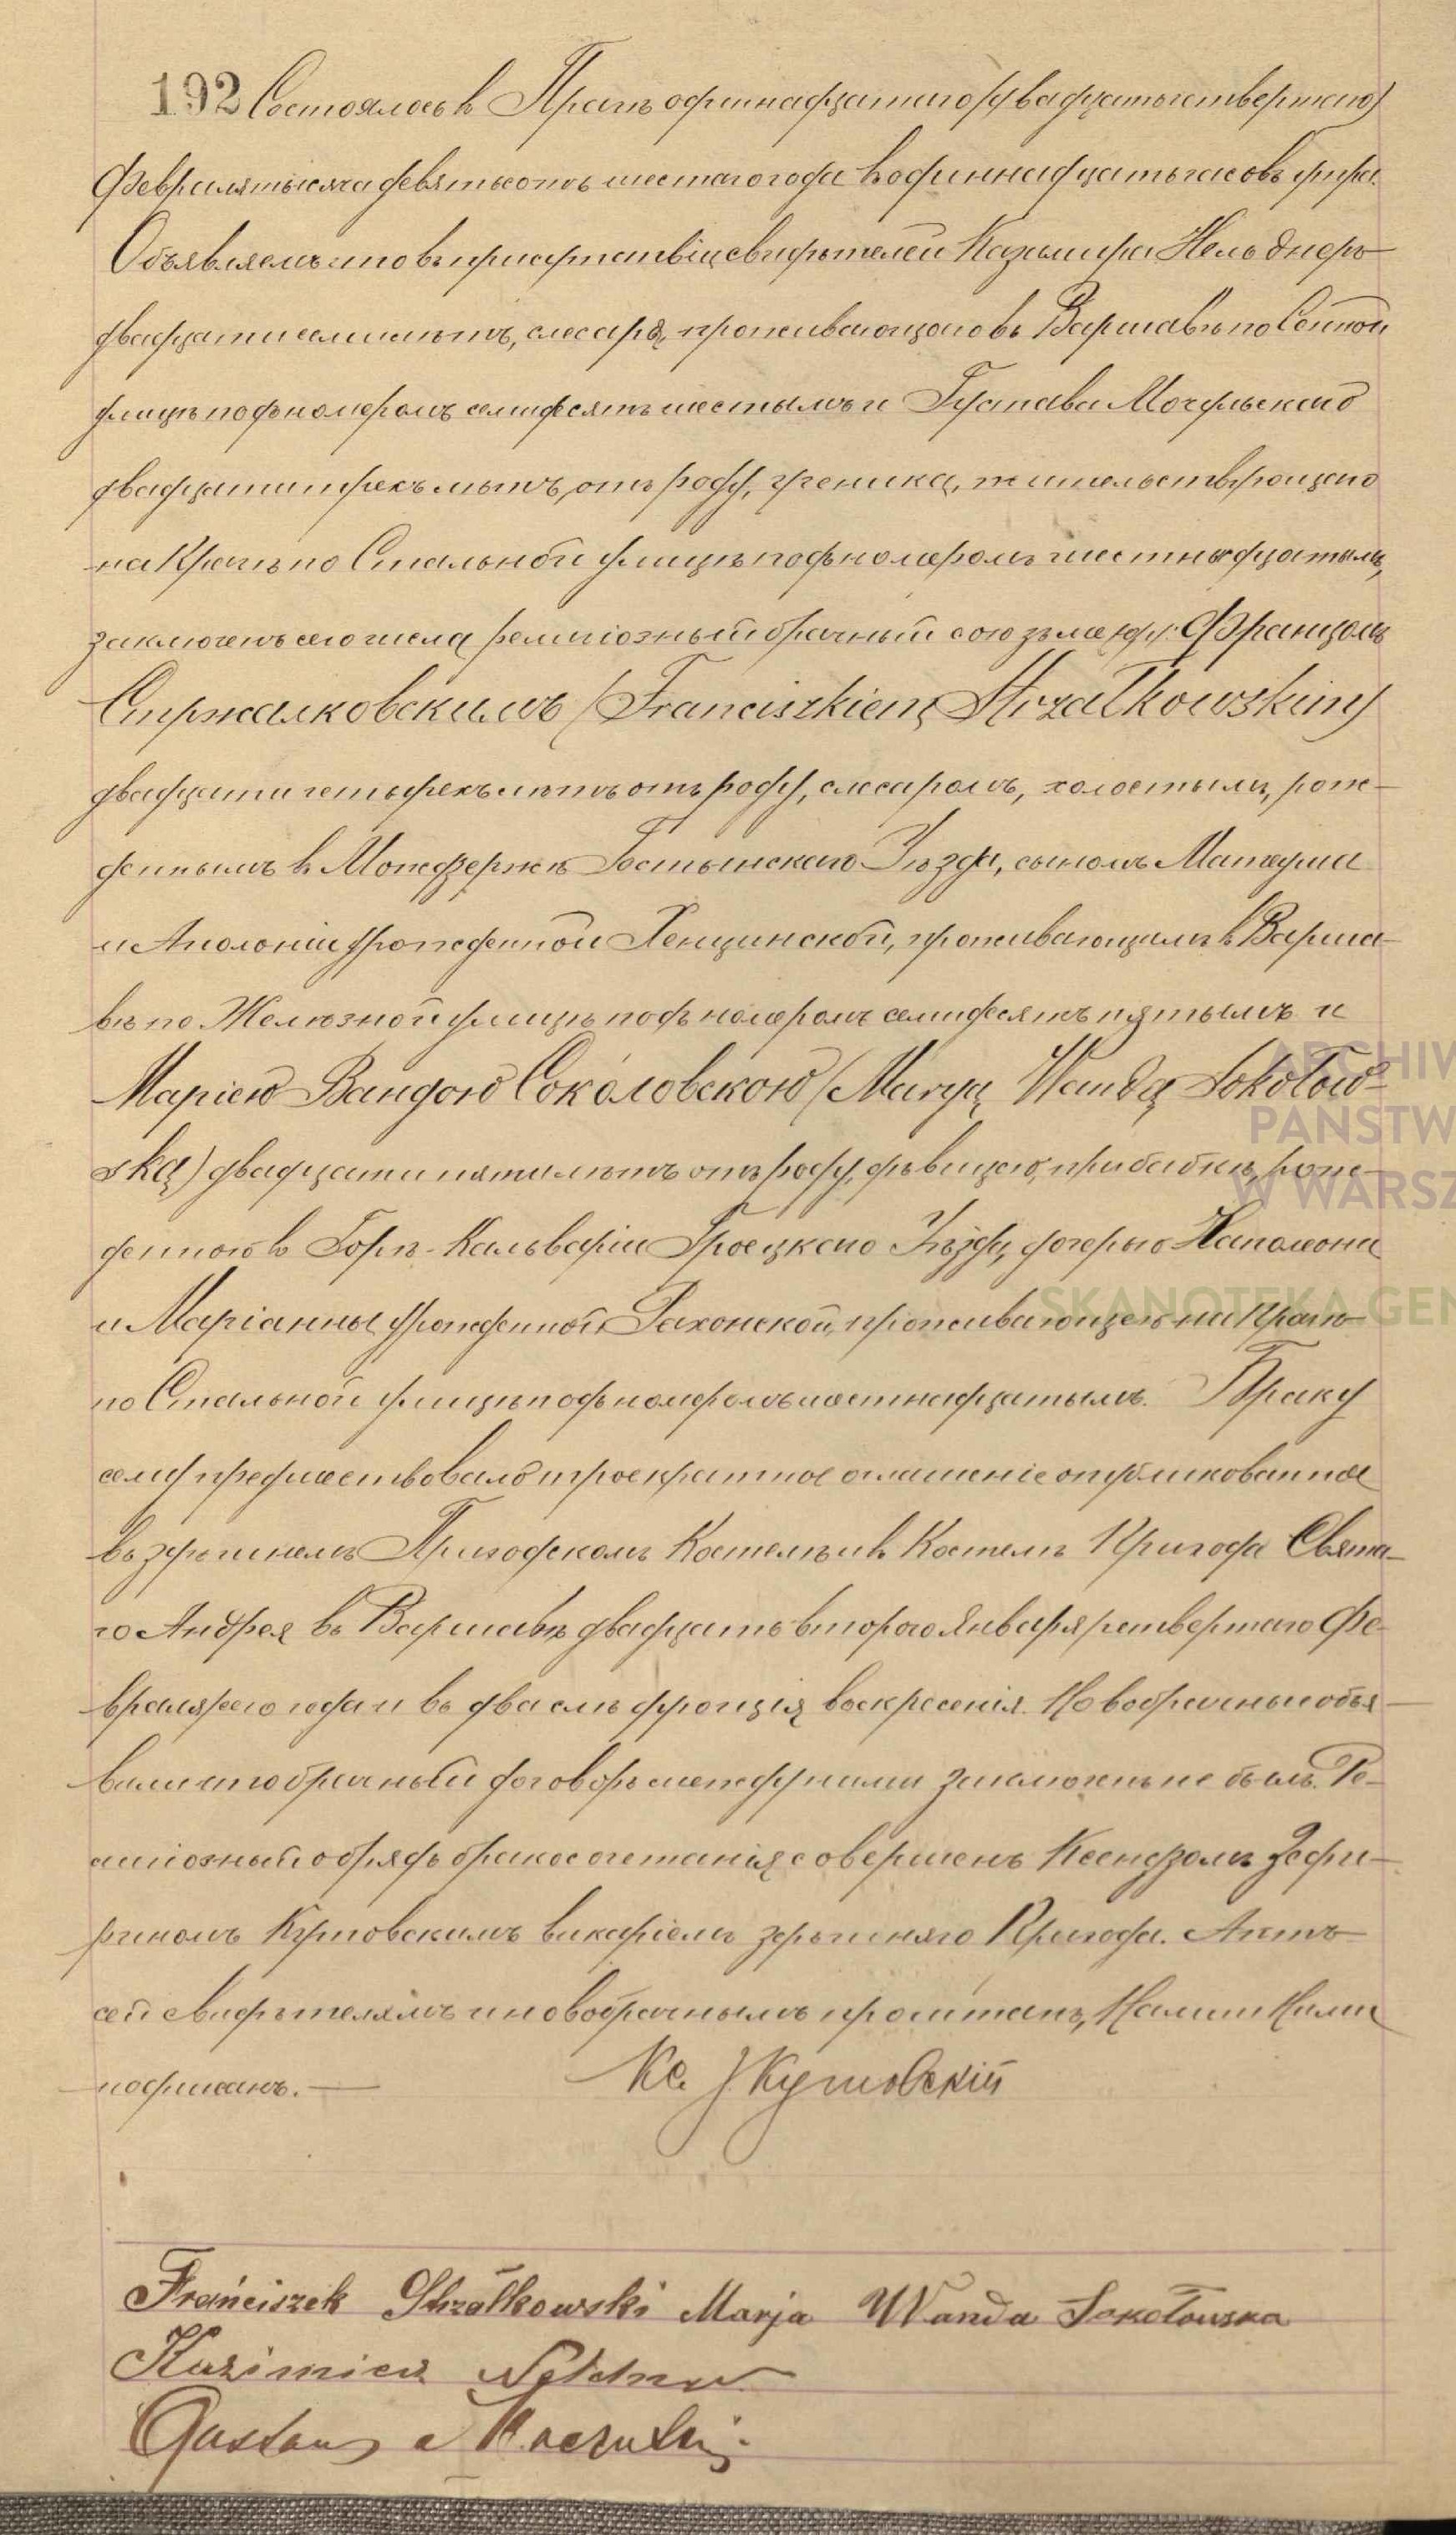 192 Состоялось въ Прагѣ одиннадцатаго (двадцать четвертаго)
Февраля тысяча девятьсотъ шестаго года въ одиннадцать часовъ утра.
Объявляемъ что въ присутствіи свидѣтелей Казимира Нельднеръ
двадцати семи лѣтъ, слесаря, проживающаго въ Варшавѣ по Сенной
улицѣ подъ номеромъ семидесятъ шестымъ и Густава Мочульскаго
двадцати трехъ лѣтъ отъ роду, ученика, жительствующаго
на Прагѣ по Стальной улицѣ подъ номеромъ шестнадцатымъ,
заключенъ сего числа религіозный брачный союзъ между: Францомъ
Стржалковскимъ (Franciszkiem Strzałkowskim)
двадцати четырехъ лѣтъ отъ роду, слесаромъ, холостымъ, рож-
деннымъ въ Мождзержѣ Гостынскаго Уѣзда, сыномъ Матеуша
и Аполоніи урожденной Хенцинской, проживающимъ въ Варша-
вѣ по Желѣзной улицѣ подъ номеромъ семидесятъ пятымъ и
Маріею Вандою Соколовскою (Maryą Wandą Sokołow-
ską) двадцати пяти лѣтъ отъ роду, дѣвицею, при бабкѣ, рож-
денною въ Горѣ-Кальваріи Гроецкаго Уѣзда, дочерью Наполеона
и Маріанны урожденной Рахонской, проживающею на Прагѣ
по Стальной улицѣ подъ номеромъ шестнадцатымъ. Браку
сему предшествовало троекратное оглашеніе опубликованное
въ здѣшнемъ Приходскомъ Костелѣ и въ Костелѣ Прихода Свята-
го Андрея въ Варшавѣ двадцать втораго Января / четвертаго Фе-
враля / сего года и въ два слѣдующія воскресенія. Новобрачные объя-
вили что брачный договоръ между ними заключенъ не былъ. Ре-
лигіозный обрядъ бракосочетанія совершенъ Ксендзомъ Зефи-
риномъ Кутовскимъ викаріемъ здѣшняго Прихода. Актъ
сей свидѣтелямъ и новобрачнымъ прочитанъ, Нами и Ними
подписанъ. — Кс.
Franciszek Strzałkowski Marja Wanda Sokołowska
Kazimierz Neldner
Gustaw Moczulski
ARCHIW
PAŃSTW
W WARSZ
SKANOTEKA GEN